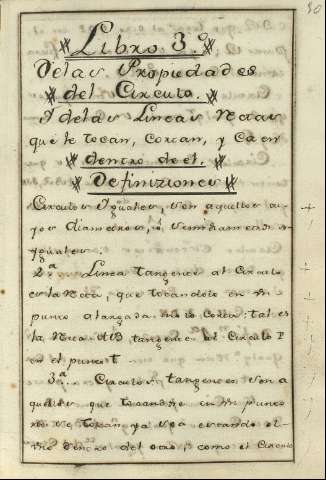 50
Libro 3.º
Delas Propiedades
del Circulo.
Y delas Lineas Rectas
que le tocan, cortan, y caen
dentro de el.
Definiziones
Circulos Yguales, son aquellos cu
yos diametros, ò semidiametros
yguales
2.ª Linea tangente al Circulo
es la Recta, que tocandole en un
punto alargada no lo Corta: tal es
la Recta AB tangente al Circulo P
en el punto T
3.ª Circulos tangentes son a
quellos que tocandose en un punto
no se Cortan ya sea estando el
uno dentro del otro, como el Circulo